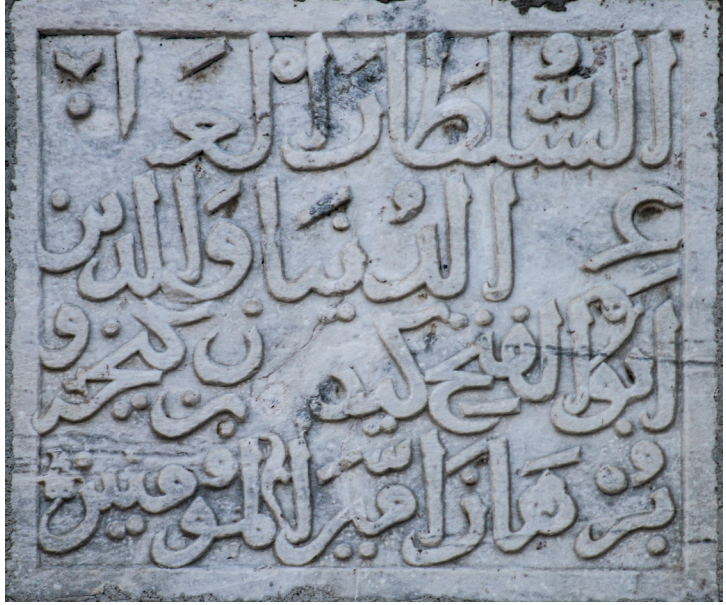 السلطان الغالب
عز الدنيا والدين
ابو الفتح بن كيخسرو
برهان امير المؤمنين